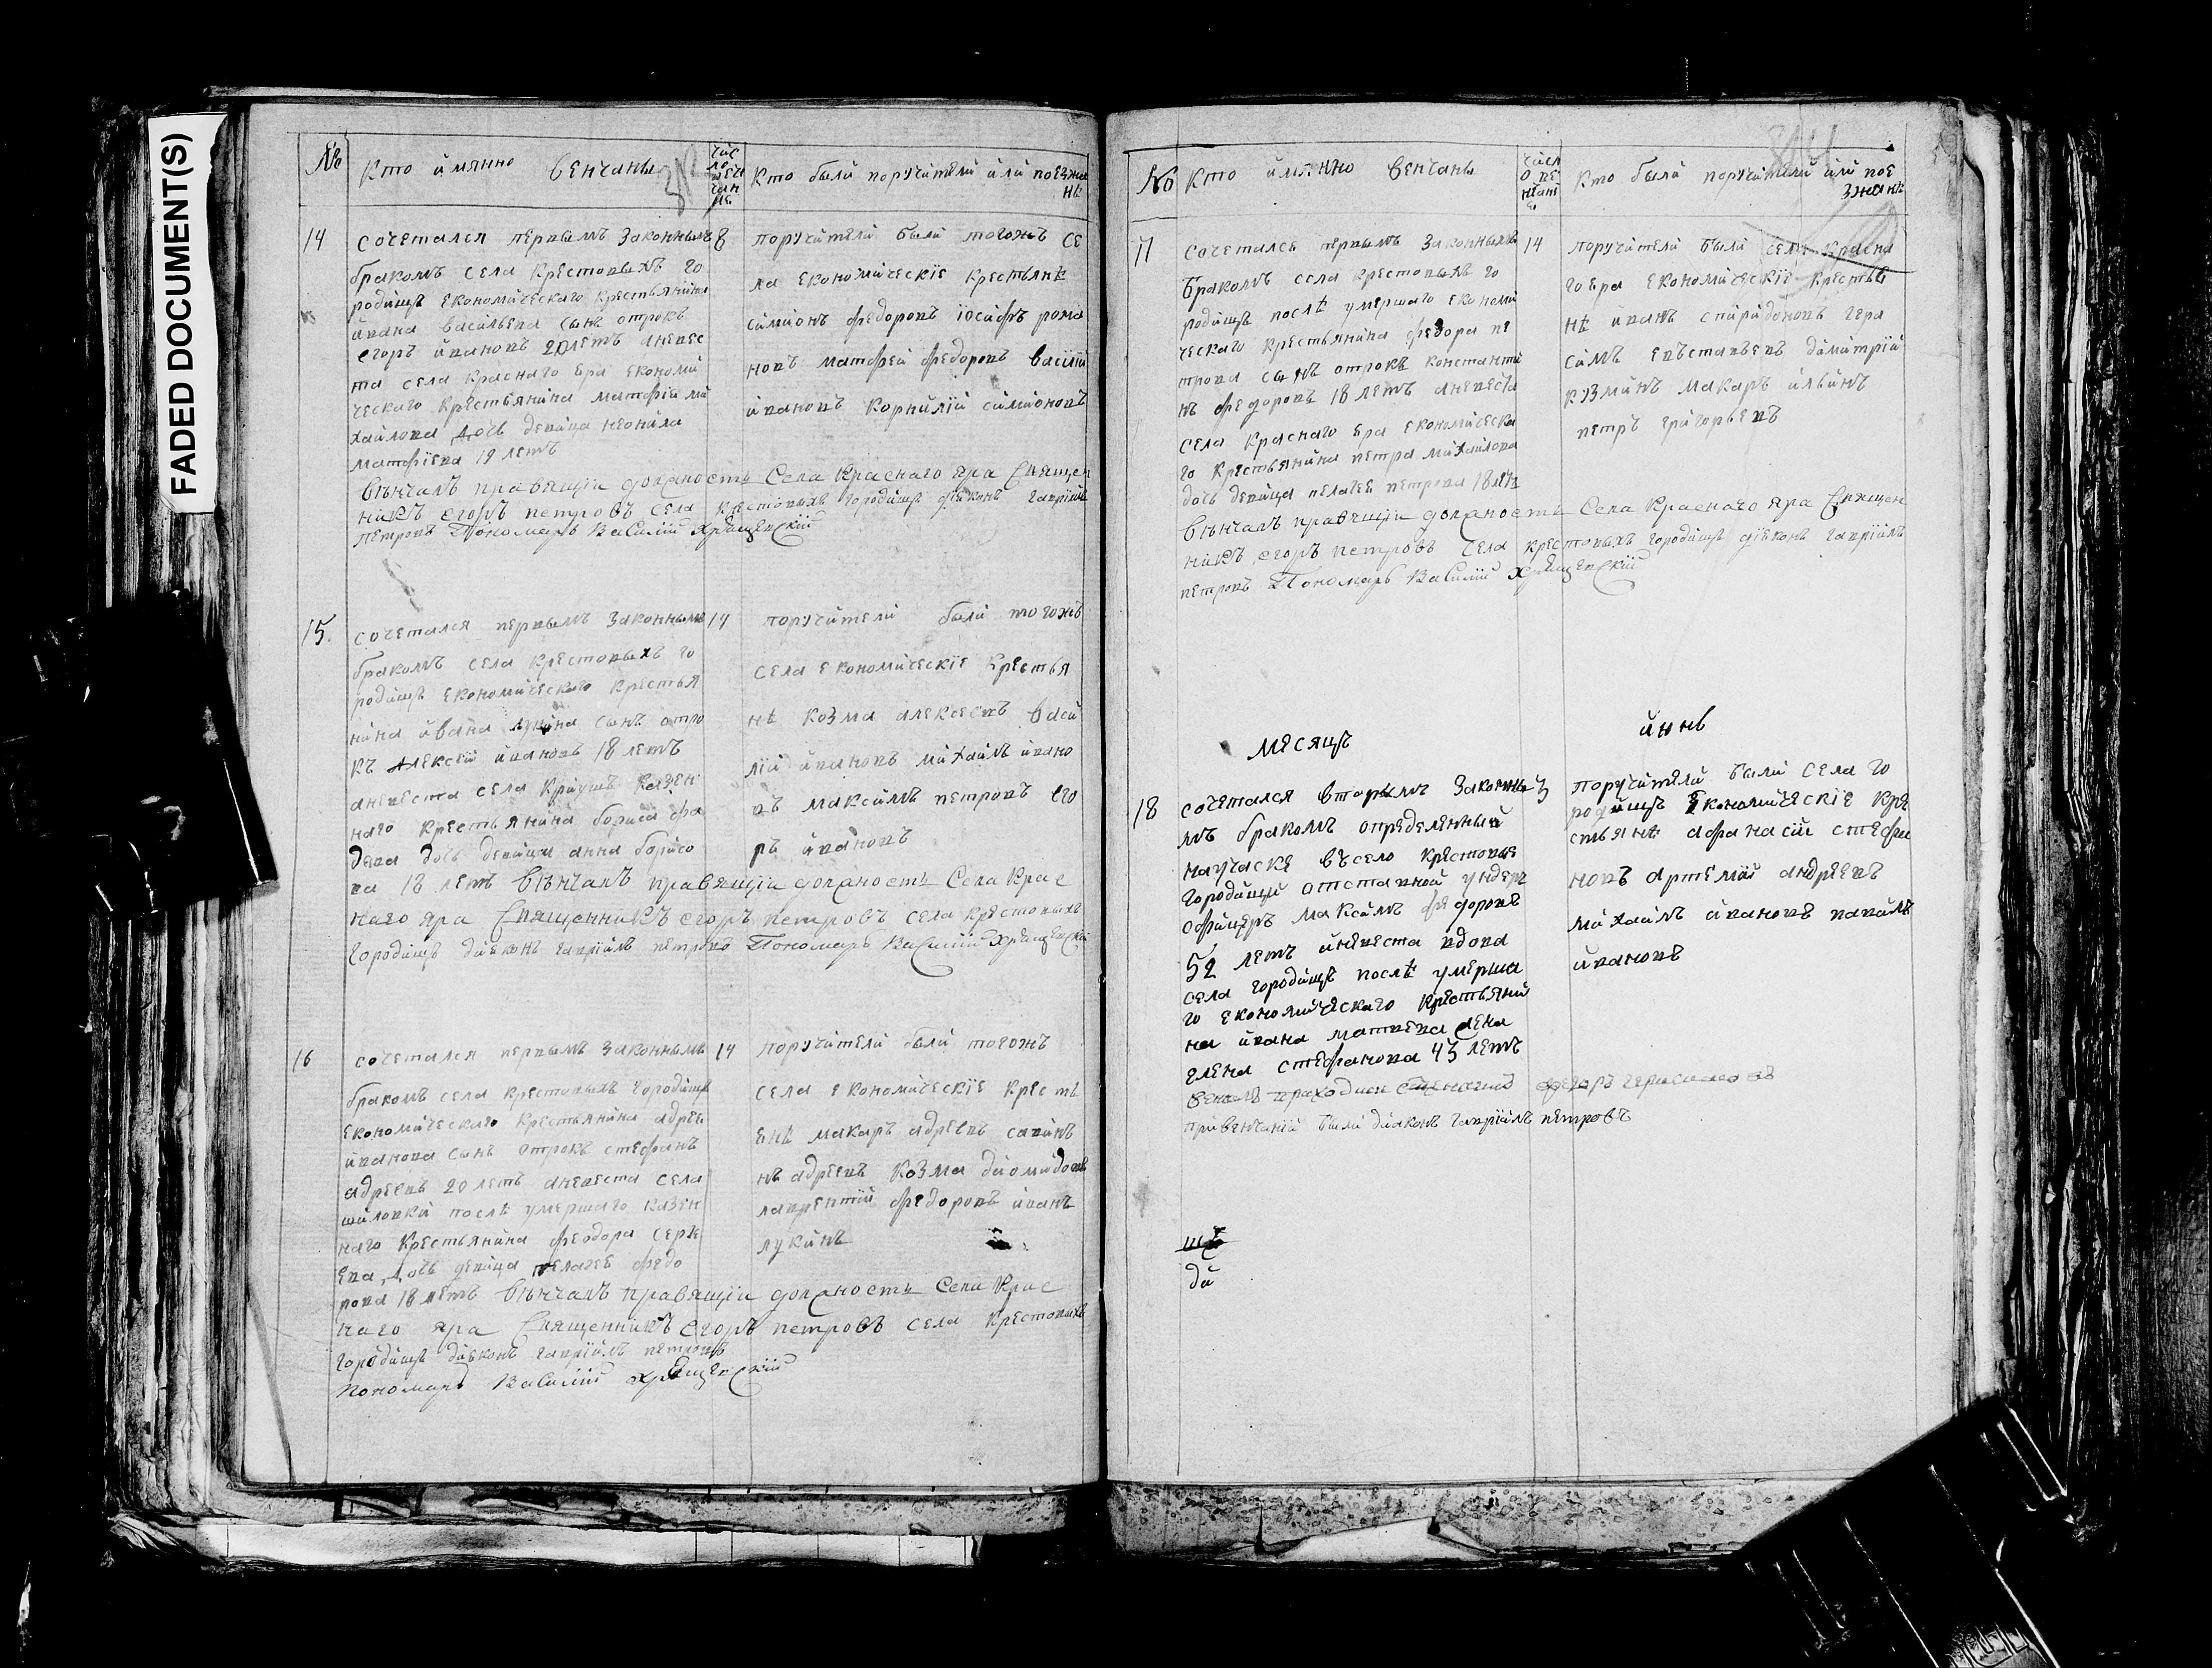 FADED DOCUMENT(S)
№
Кто имянно венчаны
Кто были поручители или поезжа
не
14
сочетался первымъ законнымъ
бракомъ села крестовыхъ го
родищъ економическаго крестьянина
ивана васильева сынъ отрокъ
егоръ ивановъ 20 летъ аневес
та села краснаго Яра економи
ческаго крестьянина матфiя ми
хайлова дочь девица неонила
матфiева 19 летъ
8
поручители были тогожъ се
ла економическiе крестьянѣ
симионъ федоровъ iосифъ рома
новъ матфей федоровъ василiй
ивановъ корнилiй симионовъ
вѣнчалъ правящiи должность Села Краснаго Яра Священ
никъ егоръ петровъ села крестовыхъ городищъ дiяконъ гаврiилъ
петровъ Пономарь Василiй Хрящевскiй
15.
сочетался первымъ законнымъ
бракомъ села крестовыхъ го
родищъ економическаго крестья
нина ивана лукина сынъ отро
къ Алексей ивановъ 18 летъ
аневеста села Краушъ казен
наго крестьянина бориса фа
деева дочь девица анна борисо
ва 18 летъ
14
поручители были тогожъ
села економическiе крестья
нѣ козма алексеевъ васи
лiй ивановъ михаилъ ивано
въ максимъ петровъ его
ръ ивановъ
вѣнчалъ правящiи должность Села Крас
наго Яра Священникъ егоръ петровъ села крестовыхъ
городищъ дияконъ гаврiилъ петровъ Пономарь Василiй Хрящевскiй
16
сочетался первымъ законнымъ
бракомъ села крестовыхъ городищъ
економическаго крестьянина адрея
иванова сынъ отрокъ стефанъ
адреевъ 20 летъ аневеста села
шиловки послѣ умершаго казен
наго крестьянина феодора серге
ева дочь девица пелагея федо
рова 18 летъ
14
поручители были тогожъ
села економическiе кресть
янѣ макаръ адреевъ савинъ
нъ адреевъ козма диомидовъ
лаврентiй федоровъ иванъ
лукинъ
вѣнчалъ правящiи должность Села Крас
наго Яра Священникъ егоръ петровъ села крестовыхъ
городищъ дияконъ гаврiилъ петровъ
Пономарь Василiй Хрящевскiй
№
Кто имянно венчаны
Кто были поручители или пое
зжанѣ
17
сочетался первымъ законнымъ
бракомъ села крестовыхъ го
родищъ послѣ умершаго економи
ческаго крестьянина федора пе
трова сынъ отрокъ константи
нъ федоровъ 18 летъ аневеста
села краснаго Яра економическа
го крестьянина петра михаилова
дочь девица пелагея петрова 18 летъ
14
поручители были села красна
го Яра економическiе крестья
нѣ иванъ спиридоновъ гера
симъ евъставьевъ димитрiй
кузминъ макаръ ильинъ
петръ григорьевъ
вѣнчалъ правящiи должность Села Краснаго Яра Священ
никъ егоръ петровъ Села крестовыхъ городищъ дiяконъ гаврiилъ
петровъ Пономарь Василiй Хрящевскiй
месяцъ июнь
18
сочетался вторымъ законны
мъ бракомъ определенный
научаске въсело крестовые
городищи отставной ундеръ
офицеръ максимъ федоровъ
52 летъ иневеста вдова
села городищъ послѣ умерша
го економическаго крестьяни
на ивана матвева жена
елена стефанова 43 летъ
3
поручители были села го
родищъ економическiе кре
стьянѣ афанасiй стефа
новъ артемiй андреевъ
михаилъ ивановъ павилъ
ивановъ
привенчанiй были дияконъ гаврiилъ петровъ
ди